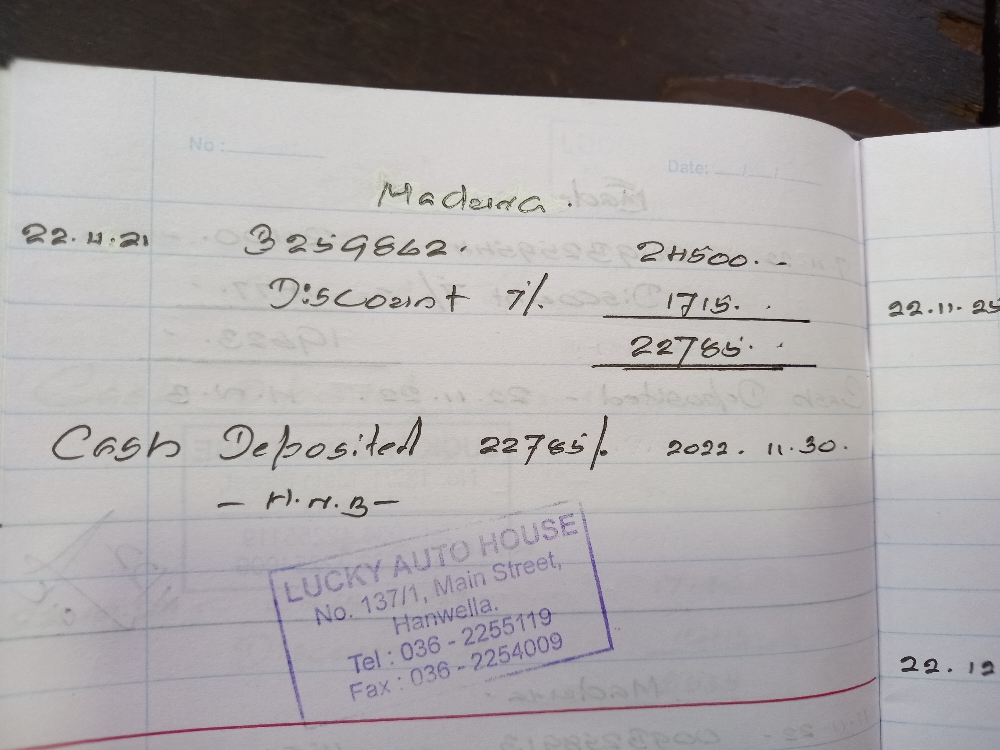 No :
Date: __/__/__
Madura.
22.11.21 3259862. 24500. -
Discount 7% 1715. .
22785. -
Cash Deposited 22785/. 2022. 11.30.
- H.N.B -
LUCKY AUTO HOUSE
No. 137/1, Main Street,
Hanwella.
Tel : 036 - 2255119
Fax : 036 - 2254009
22.11.25
22.12